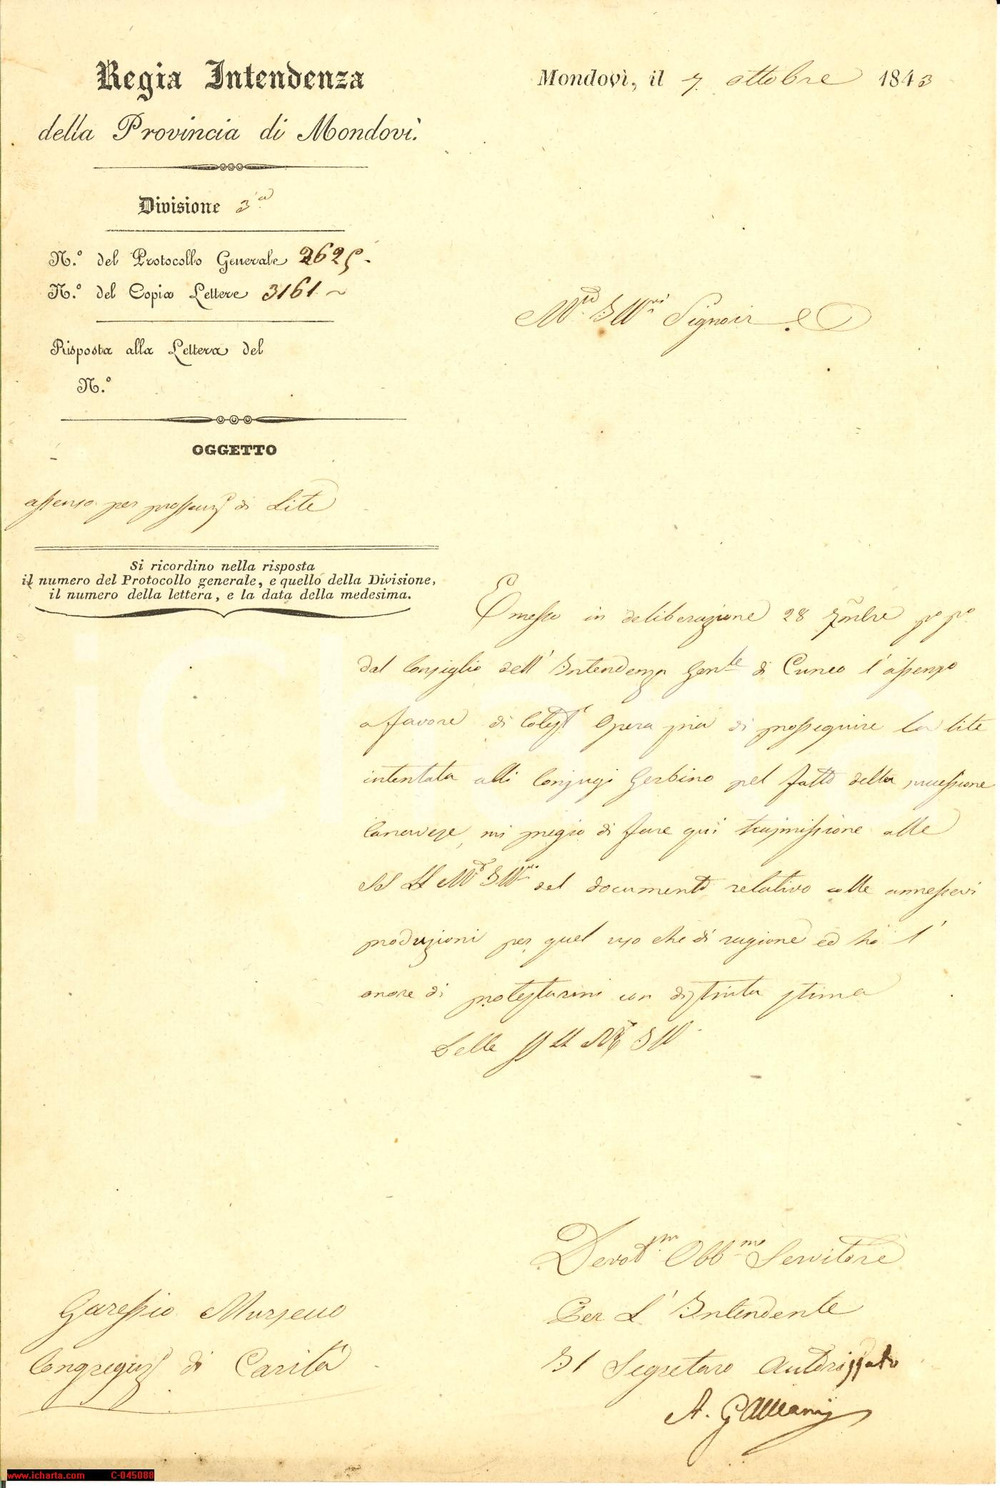 Regia Intendenza
della Provincia di Mondovì.
Mondovì, il 7 ottobre 1843
Divisione 3.a
N.° del Protocollo Generale 2625.
N.° del Copia Lettere 3161
Risposta alla Lettera del
N.°
OGGETTO
assenso per prosecuz.e di Lite
Si ricordino nella risposta
il numero del Protocollo generale, e quello della Divisione,
il numero della lettera, e la data della medesima.
Signori
Emesso in deliberazione 28 7mbre p° p°
dal Consiglio dell'Intendenza Gen.le di Cuneo l'assenso
a favore di Cotest' Opera pia di proseguire la lite
intentata alli Conjugi Gerbino pel fatto della successione
Canavese, mi pregio di fare qui trasmissione alle
SS LL del documento relativo colle annessevi
produzioni per quel uso che di ragione ed ho l'
onore di protestarmi con distinta stima
Delle SS LL
Devot.mo Obb.mo Servitore
Per L'Intendente
Il Segretaro Autorizzato
A. Galleani
Garessio
Congregaz.e di Carità
www.icharta.com C-045088